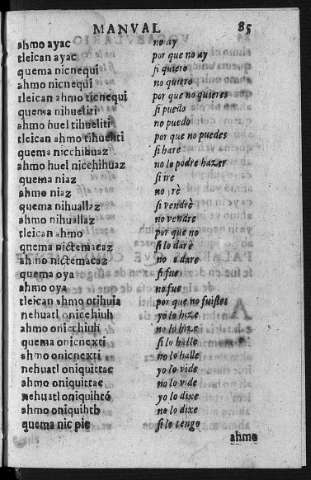 MANVAL 85
ahmo ayac no ay
tleican ayac por que no ay
quema nicnequi si quiero
ahmo nicnequi no quiero
tleican ahmo ticnequi por que no quieres
quema nihueliti si puedo
ahmo huel tihueliti no puedo
tleican ahmo tihueliti por que no puedes
quema nicchihuaz si hare
ahmo huel nicchihuaz no lo podre hazer
quema niaz si ire
ahmo niaz no
quema nihuallaz si vendrè
ahmo nihuallaz no vendre
tleican ahmo por que no
quema nictemacaz si lo darè
ahmo nictemacaz no dare
quema oya si fue
ahmo oya no fue
tleican ahmo otihuia por que no fuistes
nehuatl onicchiuh yo lo hize
ahmo onicchiuh no lo hize
quema onicnexti si lo halle
ahmo onicnexti no lo halle
nehuatl oniquittac yo lo vide
ahmo oniquittac no lo vide
nehuatl oniquihtò yo lo dixe
ahmo oniquihto no lo dixe
quema nic pie si lo tengo
ahmo